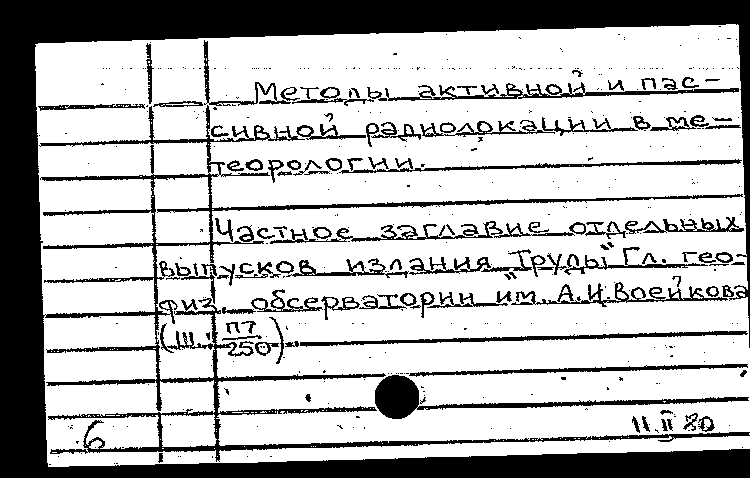 Методы активной и пас-
сивной радиолокации в ме-
теорологии.
Частное заглавие отдельных
выпусков издания "Труды" Гл. гео-
физ. обсерватории им. А.И.Воейкова
(III. П7/250)
6
11.II 80